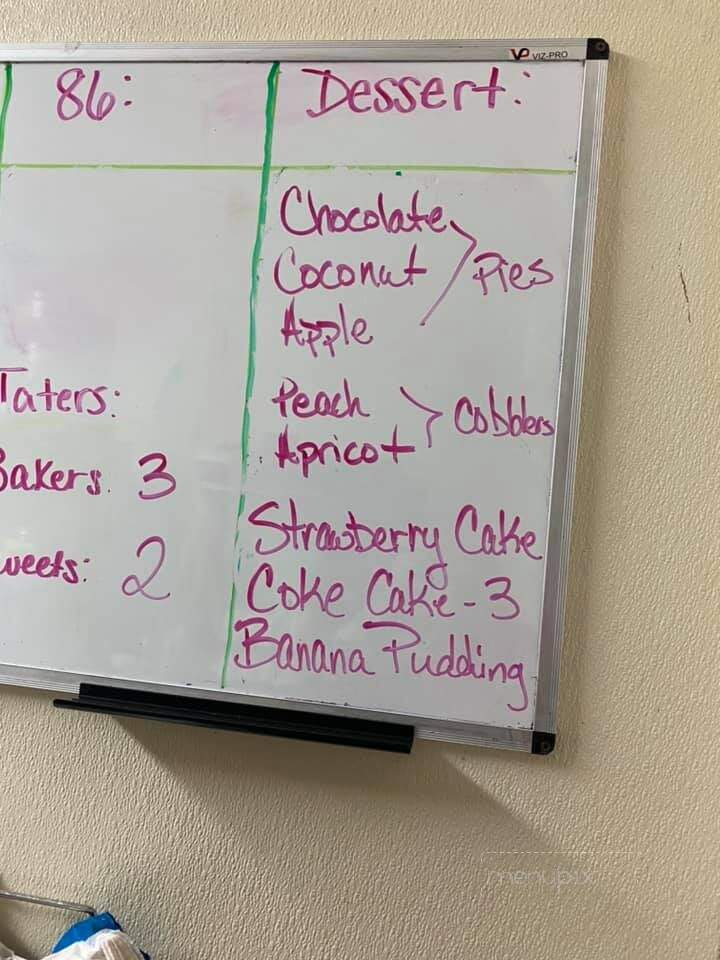 VP VIZ-PRO
86:
Taters:
Bakers. 3
weets: 2
Dessert:
Chocolate
Coconut
Apple
Pies
Peach
Apricot
Cobblers
Strawberry Cake
Coke Cake - 3
Banana Pudding
menupix